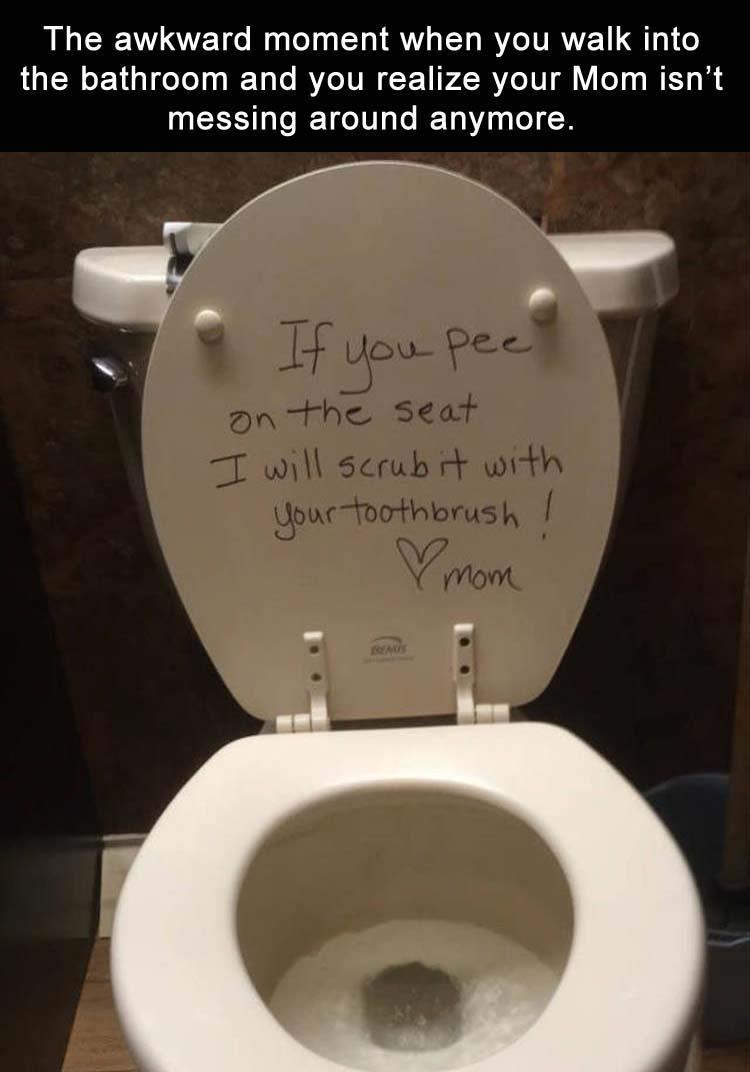 The awkward moment when you walk into
the bathroom and you realize your Mom isn't
messing around anymore.
If you pee
on the seat
I will scrub it with
your toothbrush !
♡ mom
BEMIS